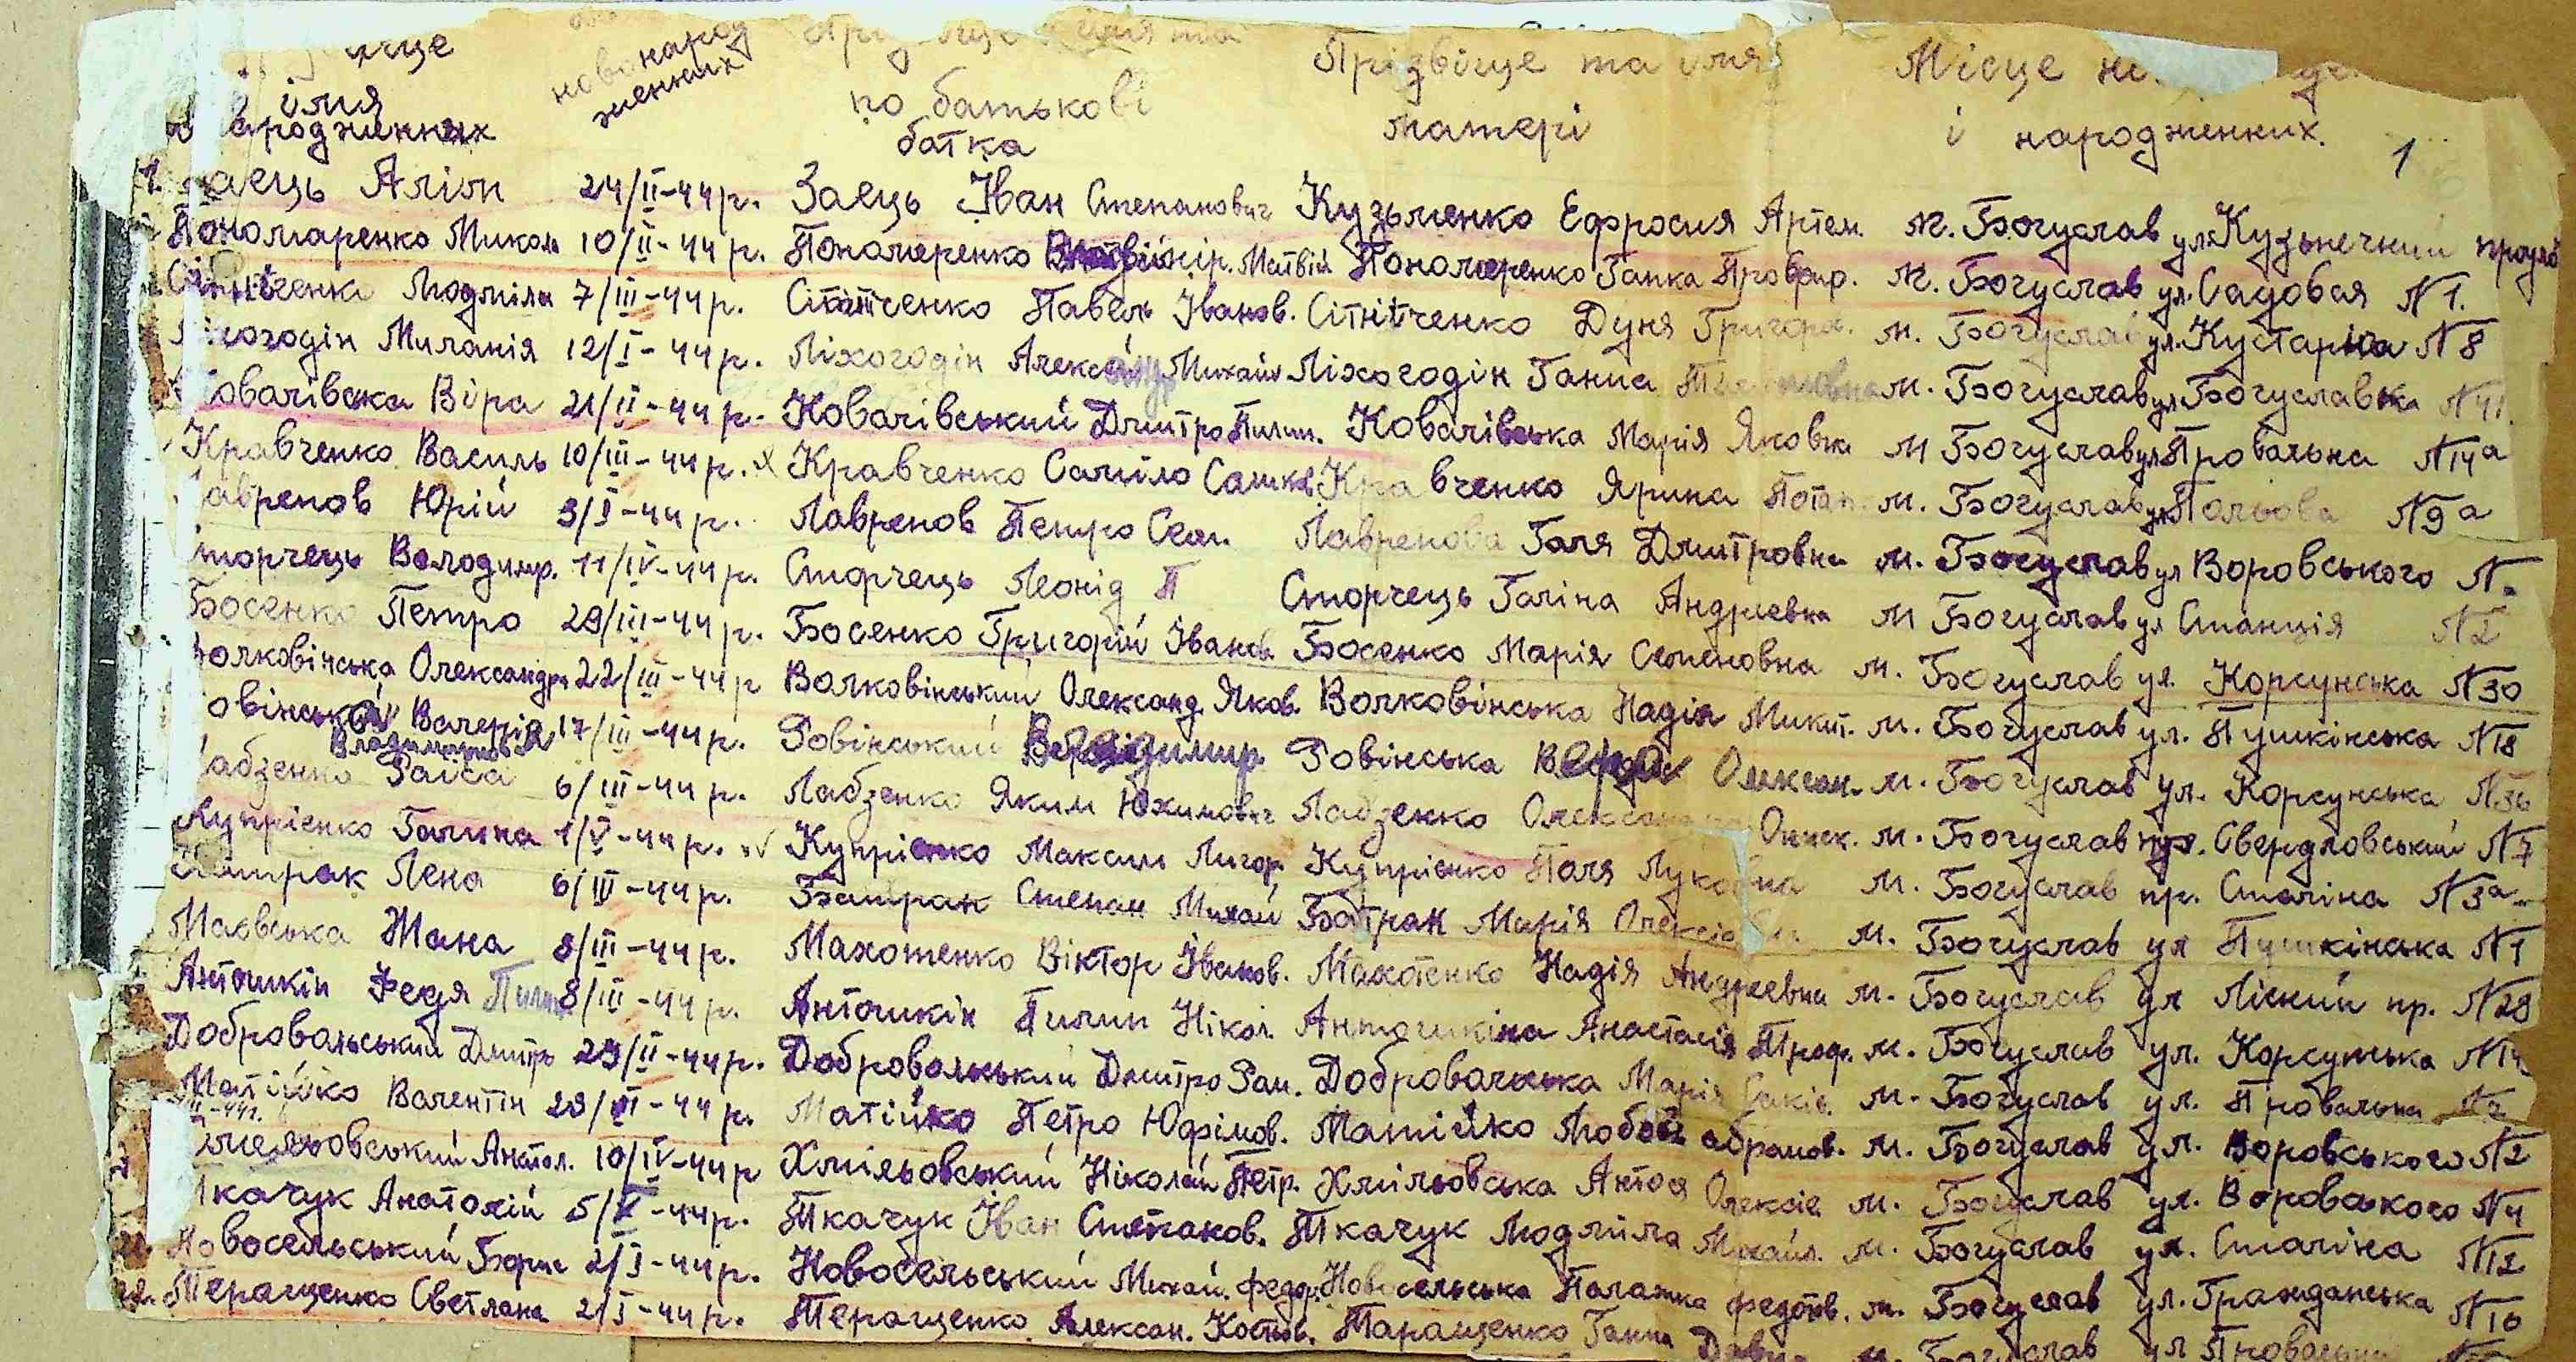 ім'я народженних
новонарод женних
по батькові батка
Прізвіще та імя матері
Місце
і народженних. 1
1. Заець Алім 24/II-44 р. Заець Іван Степанович Кузьменко Ефросия Артем. м. Богуслав ул. Кузьнечний
Пономаренко Микола 10/II-44 р. Пономеренко Матвій Пономеренко Ганка м. Богуслав ул. Садовая N 1.
Людміла 7/III-44 р. Павель Іванов. Сітнітченко Дуня Григор. м. Богуслав ул. Кустарна N 8
Миланія 12/I-44 р. Ліхогодін Михайл Ліхогодін Ганна м. Богуслав ул. Богуславка N 41.
Ковалівська Віра 21/II-44 р. Ковалівський Дмитро Пилип. Ковалівська Марія Яковна м Богуслав ул. Провальна N 14а
Кравченко Василь 10/III-44 р. Кравченко Саміло Кравченко Ярина Потап. м. Богуслав ул. Польова N 9а
Лавренов Юрій 3/I-44 р. Лавренов Петро Сем. Лавренова Галя Дмитровна м. Богуслав ул Воровського N.
Сторчець Володимир. 11/IV-44 р. Сторчець Леонід П Сторчець Галіна Андриевна м Богуслав ул Станція N 2
Босенко Петро 29/III-44 р. Босенко Григорій Іванов. Босенко Марія Семеновна м. Богуслав ул. Корсунська N 30
Волковінська Олександра 22/III-44 р Волковінський Олександ. Яков. Волковінська Надія Микит. м. Богуслав ул. Пушкінська N 18
Валерія 17/III-44 р. Ровінський Ровінська Олексан. м. Богуслав ул. Корсунська N 36
Владимировна
Ладзенко Раіса 6/III-44 р. Ладзенко Яким Юхимович Ладзенко м. Богуслав Свердловський N 7
Купрієнко Галина 1/V-44 р. Купрієнко Максим Лигор. Купрієнко Поля Луковна м. Богуслав пр. Сталіна N 3а
Батрак Лена 6/III-44 р. Батрак Степан Михай Батрак Марія м. Богуслав ул Пушкінська N 1
Маєвська Жана 8/III-44 р. Махотенко Віктор Іванов. Махотенко Надія Андриевна м. Богуслав ул Лісний пр. N 28
Антошкін Федя Пилип 8/III-44 р. Антошкін Пилип Нікол. Антошкіна Анастасія Проф. м. Богуслав ул. Корсунська N 14
Добровольський Дмитр 29/II-44 р. Добровольський Дмитро Ром. Добровольська Марія м. Богуслав ул. Провальна N 2
Матійко Валентін 29/II-44 р. Матійко Петро Юфімов. Матійко Любов Абрамов. м. Богуслав ул. Воровського N 2
Хмільовський Анатол. 10/IV-44 р Хмільовський Ніколай Петр. Хмільовська Антося Олексіе м. Богуслав ул. Воровського N 4
Ткачук Анатолій 5/V-44 р. Ткачук Іван Степанов. Ткачук Людміла Михайл. м. Богуслав ул. Сталіна N 12
Новосельський Борис 2/I-44 р. Новосельський Михай. Федор. Новосельська Палажка Федотов. м. Богуслав ул. Гражданська N 10
Терещенко Светлана 21/I-44 р. Терещенко Алексан. Костов. Таращенко Ганна м. Богуслав ул Провальна